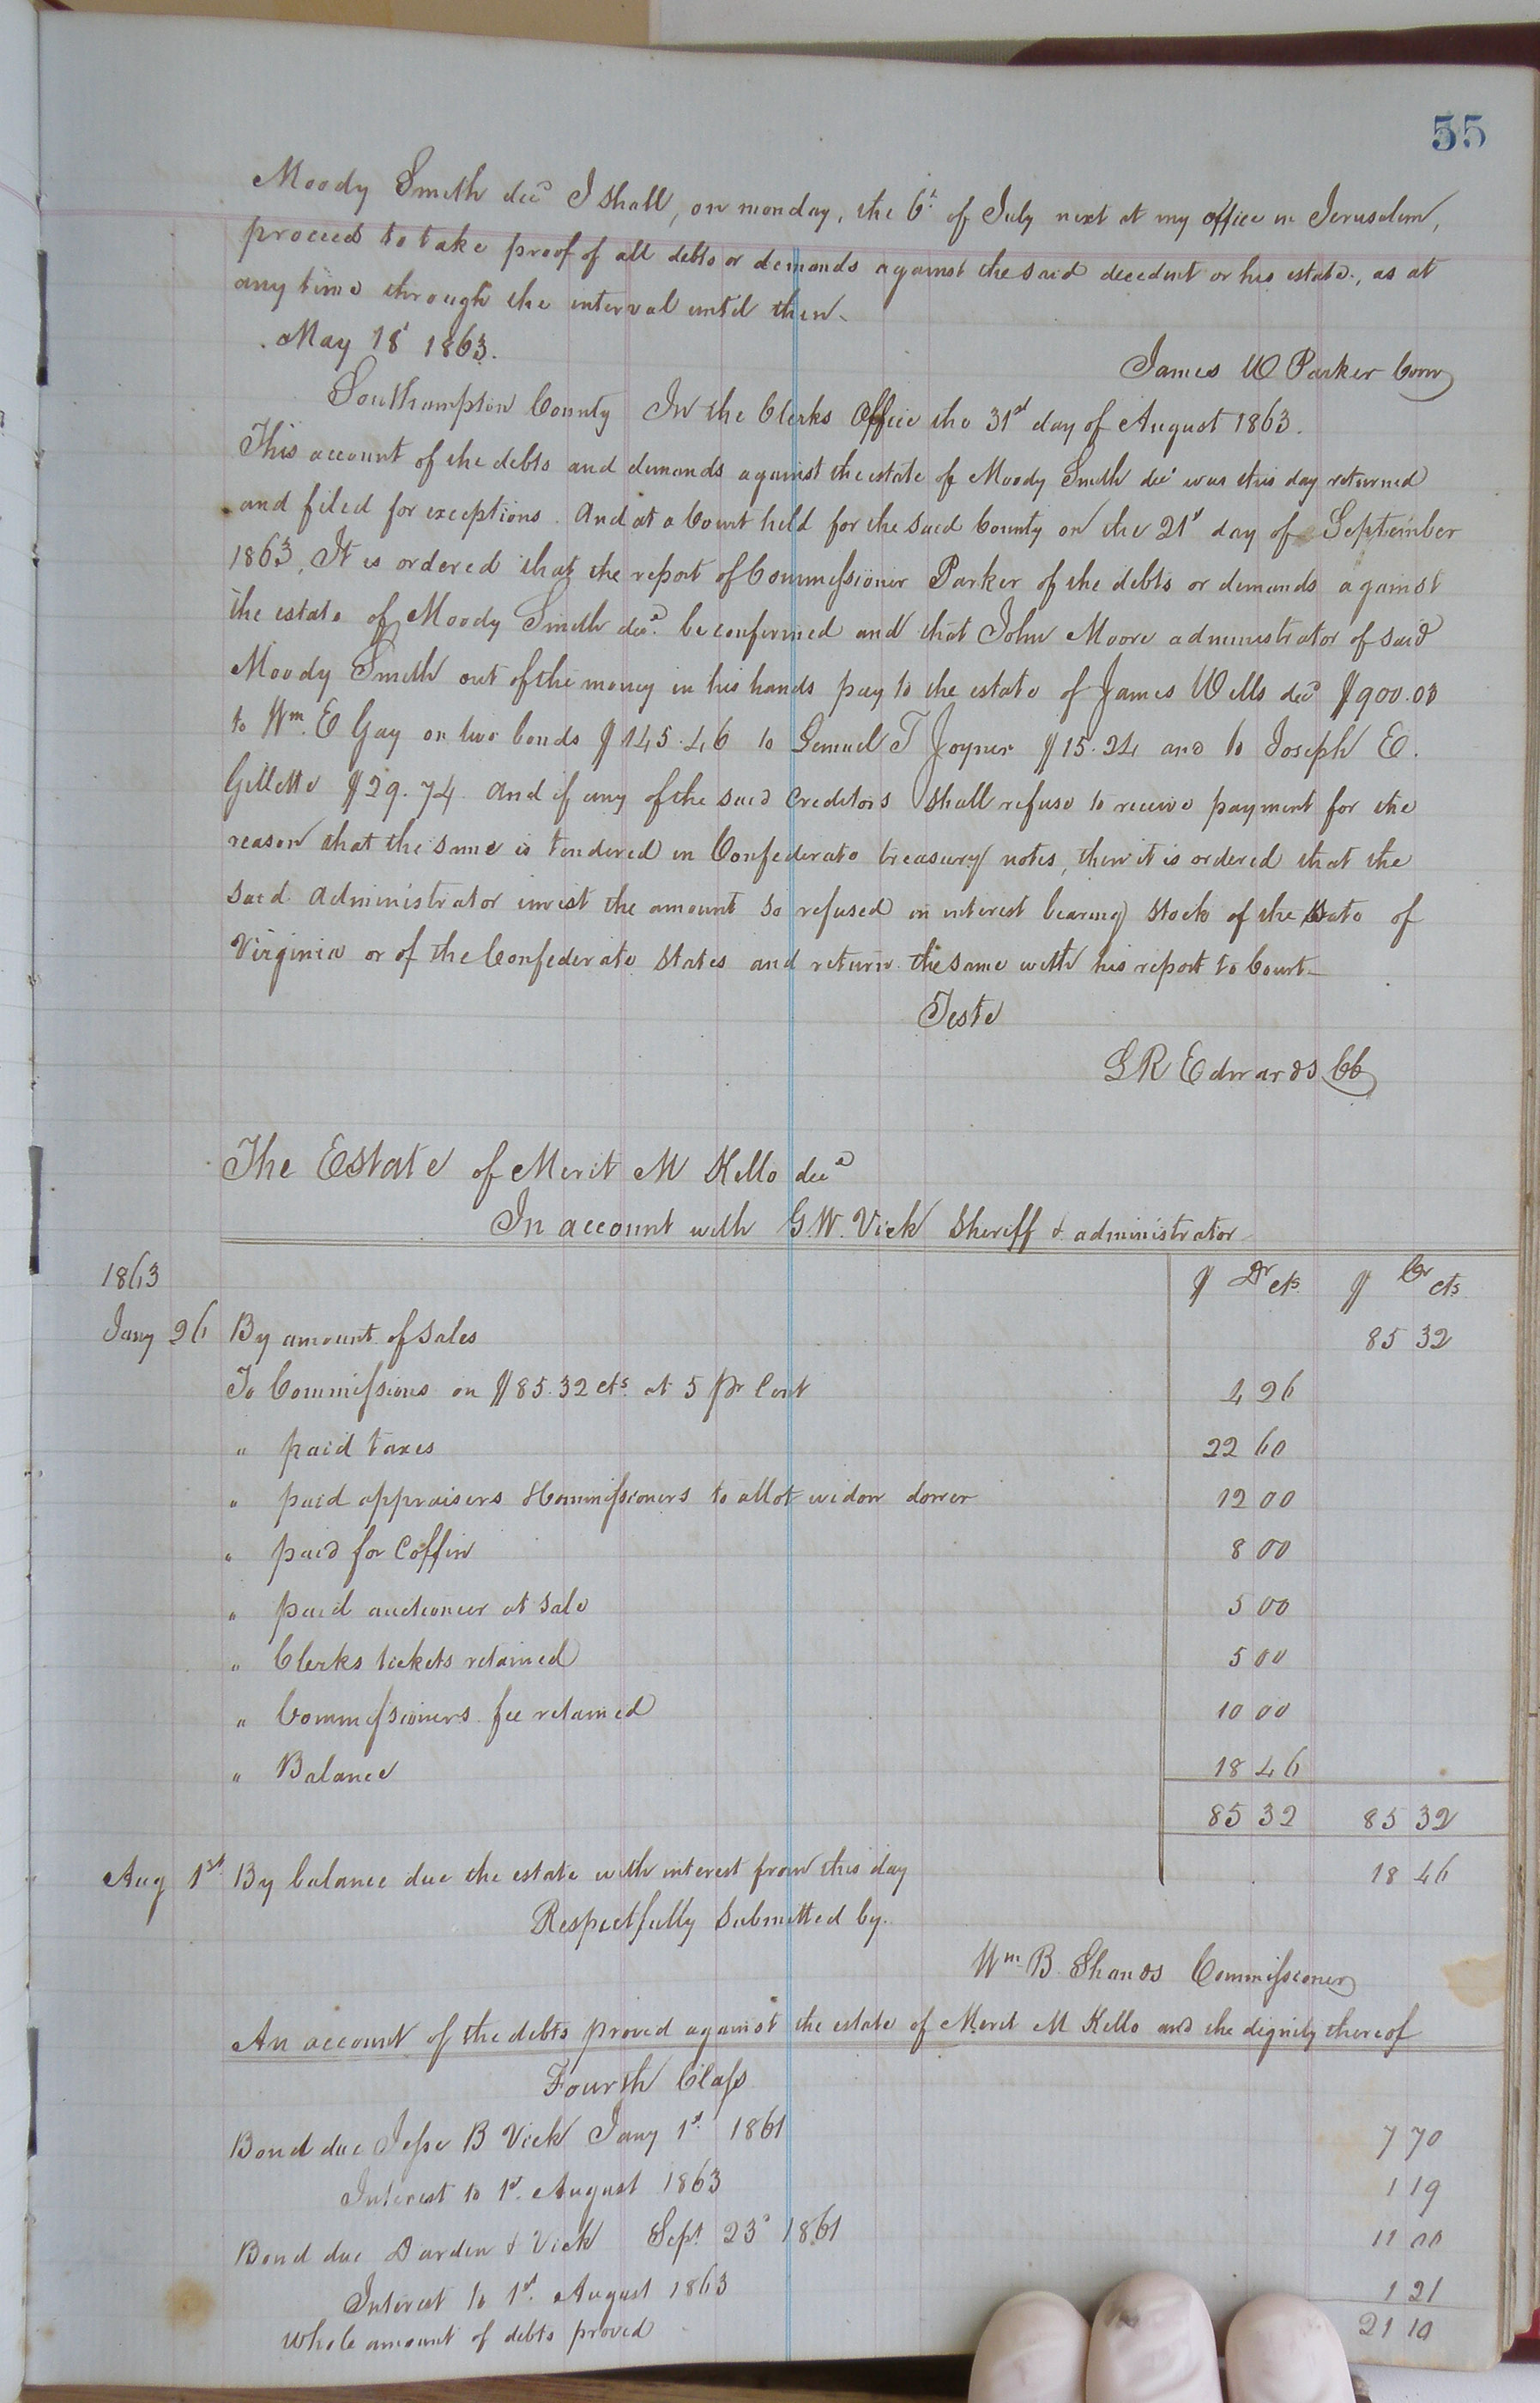 55
Moody Smith decd I shall, on monday, the 6t of July next at my office in Jerusalem,
proceed to take proof of all debts or demands against the said decedent or his estate, as at
any time through the interval until then
May 18t 1863.
James W Parker Com
Southampton County In the Clerks Office the 31st day of August 1863.
This account of the debts and demands against the estate of Moody Smith decd was this day returned
and filed for exceptions. And at a Court held for the said County on the 21st day of September
1863, It is ordered that the report of Commissioner Parker of the debts or demands against
the estate of Moody Smith decd be confirmed and that John Moore administrator of said
Moody Smith out of the money in his hands pay to the estate of James Wells decd $900.03
to Wm. E Gay on two bonds $145.46 to Lemuel T Joyner $15.24 and to Joseph E.
Gillette $29.74 and if any of the said Creditors shall refuse to receive payment for the
reason that the same is tendered in Confederate treasury notes, then it is ordered that the
said administrator invest the amount so refused in interest bearing stock of the State of
Virginia or of the Confederate States and return the same with his report to Court
Teste
L R Edwards CC
The Estate of Merit M Kello decd
In account with G. W. Vick Sheriff & administrator
1863 $ Dr cts $ Cr cts
Jany 26 By amount of sales 85 32
To Commissions on $85.32 cts. at 5 pr Cent 4 26
" paid taxes 22 60
" paid appraisers & Commissioners to allot widow dower 12 00
" paid for Coffin 8 00
" paid auctioneer at sale 5 00
" Clerks tickets retained 5 00
" Commissioners fee retained 10 00
" Balance 18 46
85 32 85 32
Aug 1st By balance due the estate with interest from this day 18 46
Respectfully submitted by.
Wm B. Shands Commissioner
An account of the debts proved against the estate of Merit M Kello and the dignity thereof
Fourth Class
Bond due Jesse B Vick Jany 1st 1861 7 70
Interest to 1st August 1863 1 19
Bond due Darden & Vick Sept 23d 1861 11 00
Interest to 1st August 1863 1 21
Whole amount of debts proved 21 10